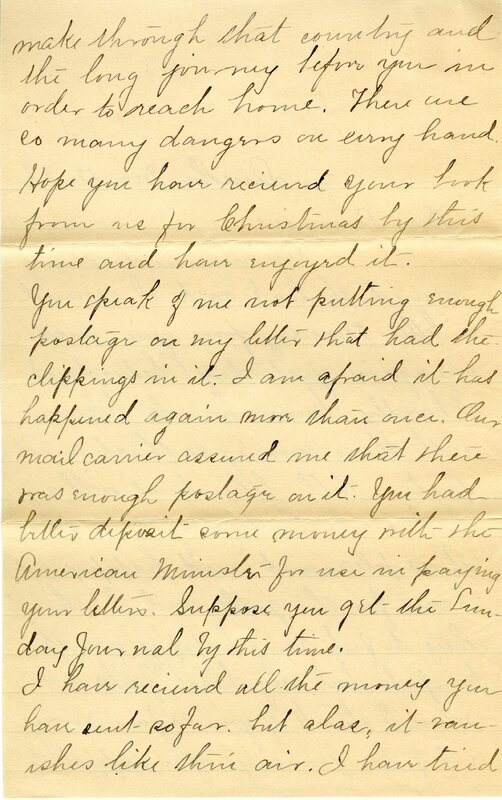 make through that country and
the long journey before you in
order to reach home. There are
so many dangers on every hand.
Hope you have recieved your book
from us for Christmas by this
time and have enjoyed it.
You speak of me not putting enough
postage on my letter that had the
clippings in it. I am afraid it has
happened again more than once. Our
mail carrier assured me that there
was enough postage on it. You had
better deposit some money with the
American Minister for use in paying
your letters. Suppose you get the Sun-
day Journal by this time.
I have recieved all the money you
have sent so far. but alas, it van-
ishes like thin air. I have tried